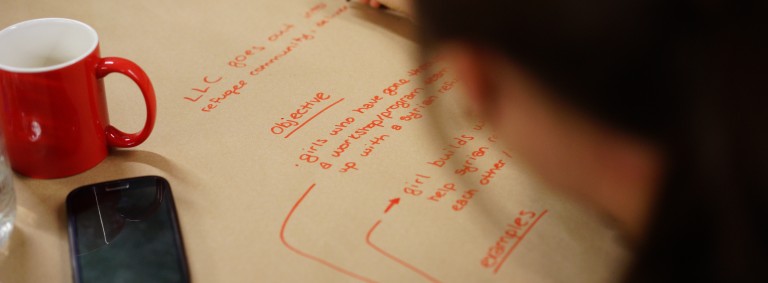 LLC goes and
refugee community,
Objective
· girls who have gone
a workshop/program
up with a syrian
girl builds
help syrian
each other /
examples